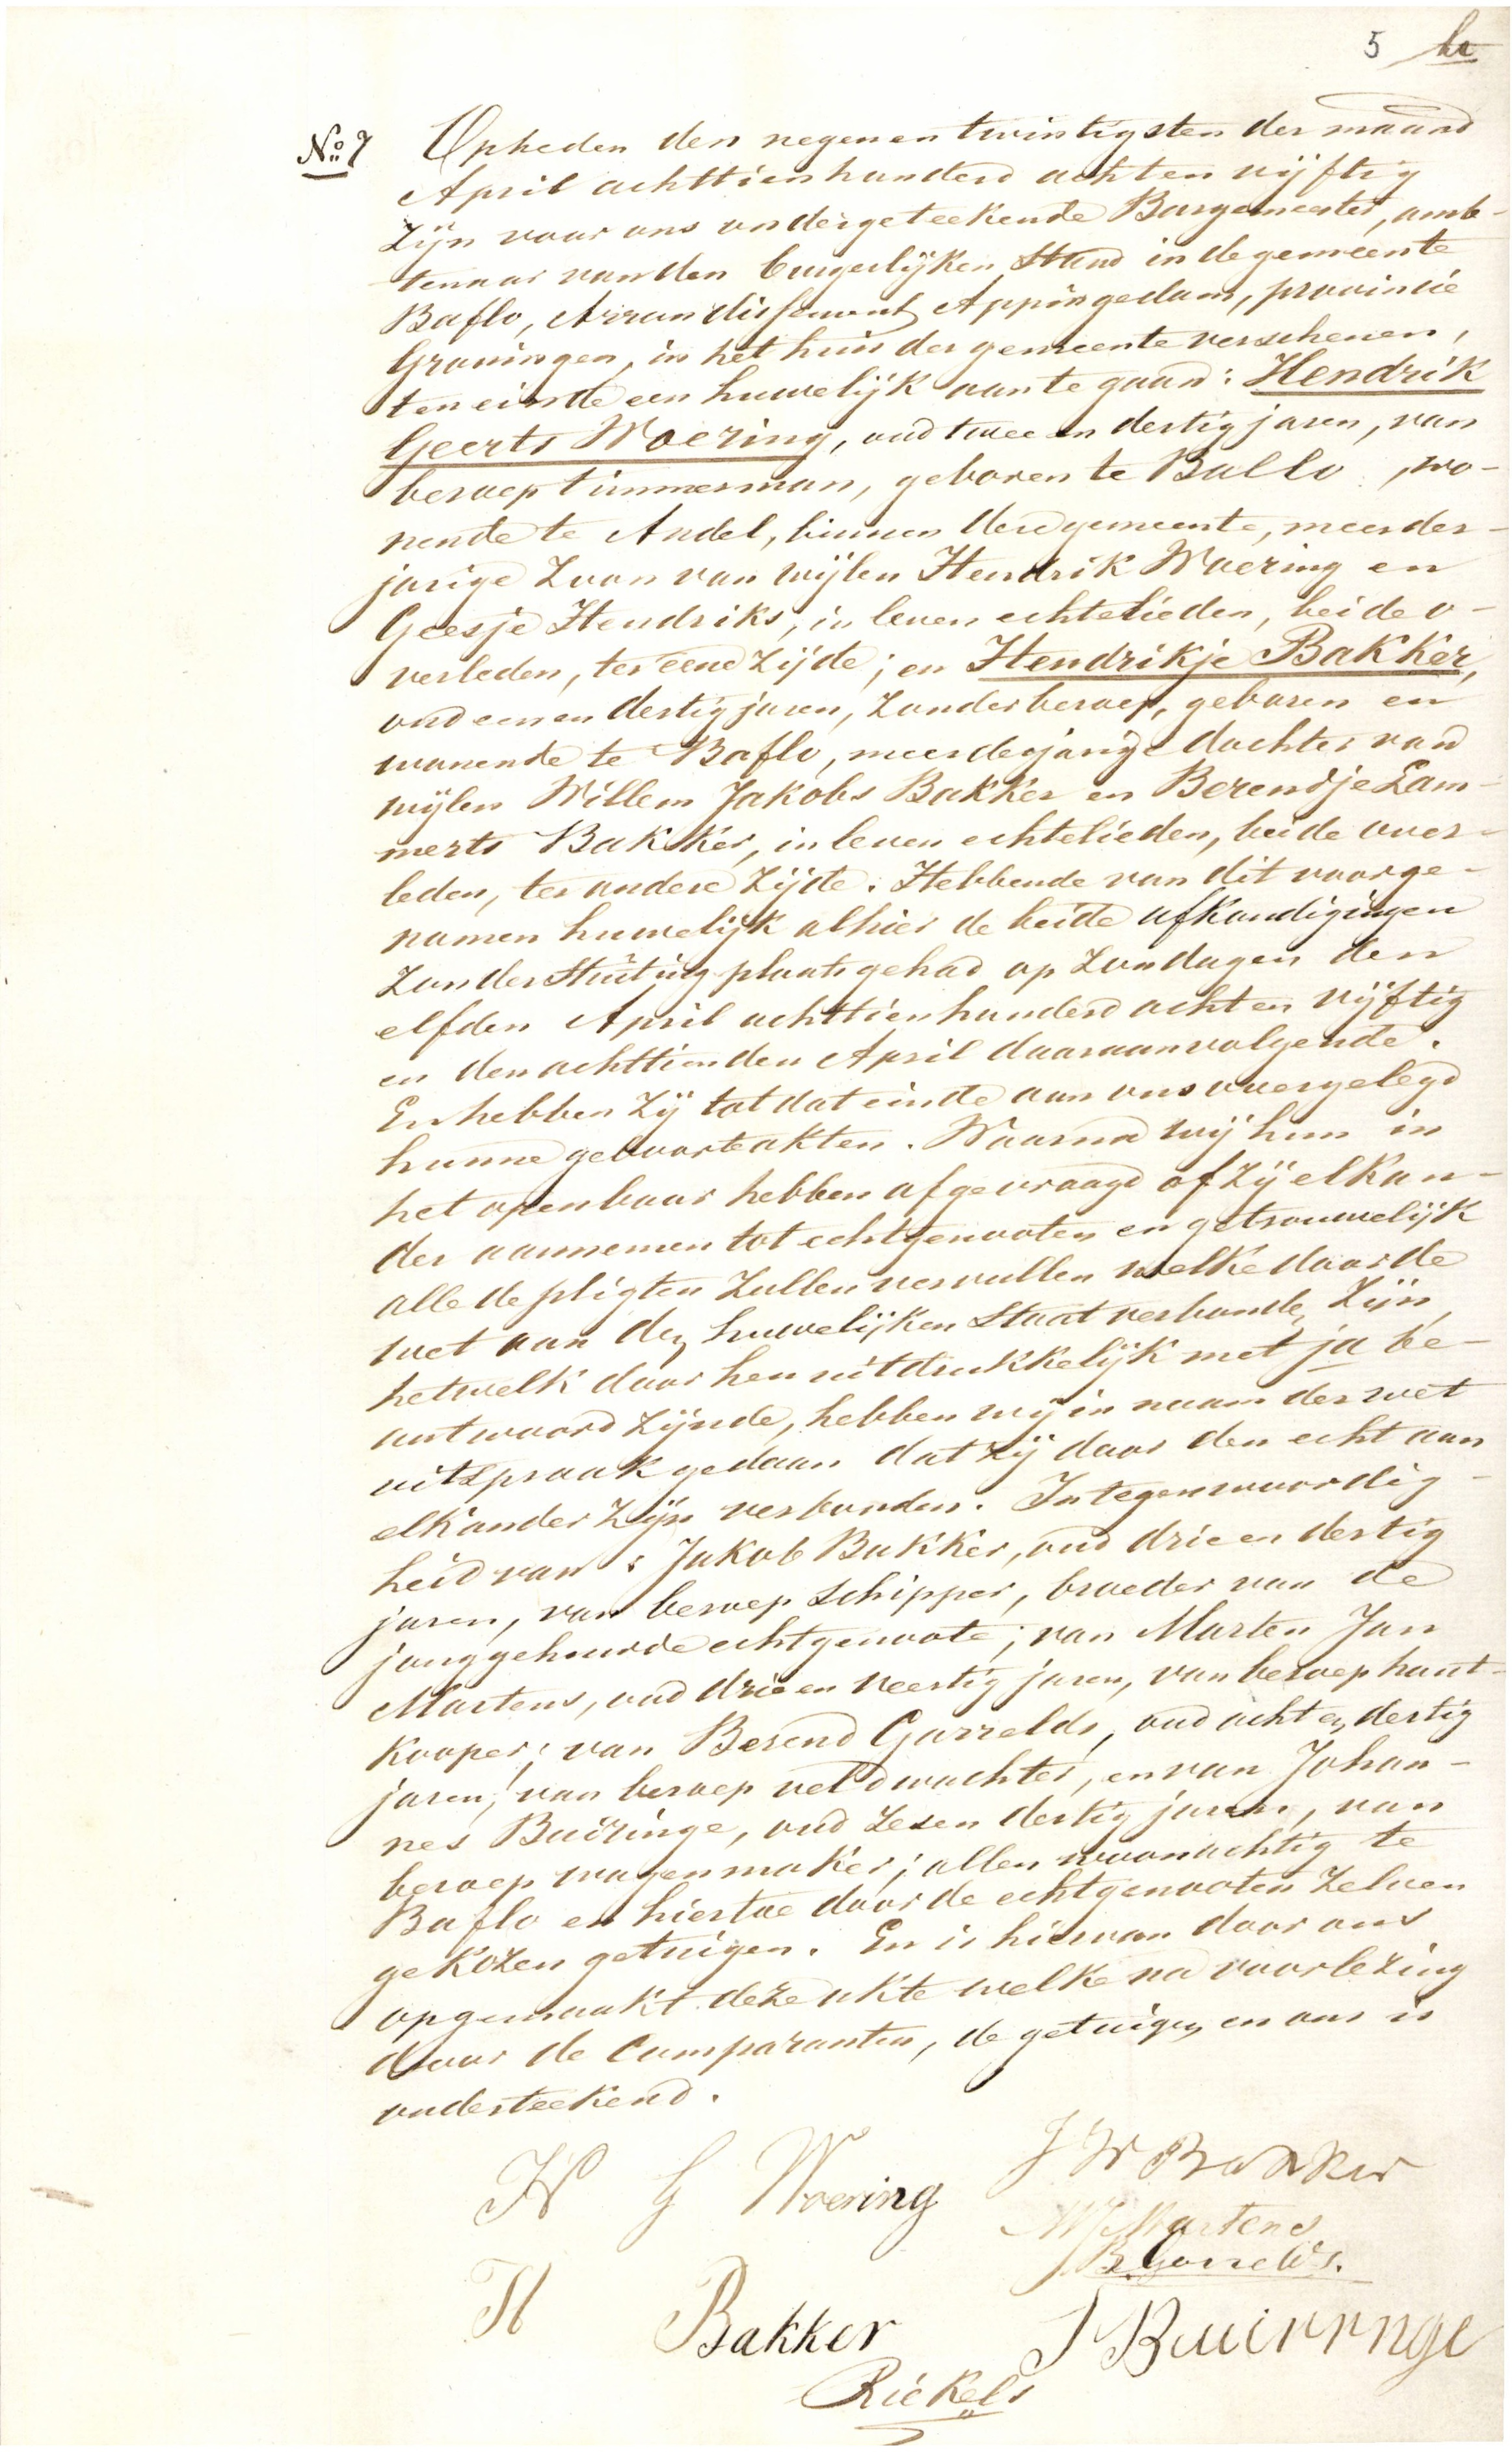 5
No 7 Opheden den negenentwintigsten der maand
April achttienhonderd achtenvijftig
zijn voor ons ondergeteekende Burgemeester, amb-
tenaar van den burgerlijken Stand in de gemeente
Baflo, Arrondissement Appingedam, provincie
Groningen, in het huis der gemeente verschenen,
ten einde een huwelijk aan te gaan: Hendrik
Geerts Woering, oud twee en dertig jaren, van
beroep timmerman, geboren te Ballo, wo-
nende te Andel, binnen deze gemeente, meerder-
jarige Zoon van wijlen Hendrik Woering en
Geesje Hendriks, in leven echtelieden, beide o-
verleden, ter eene Zijde; en Hendrikje Bakker,
oud een en dertig jaren, Zonder beroep, geboren en
wonende te Baflo, meerderjarige dochter van
wijlen Willem Jakobs Bakker en Berendje Lam-
merts Bakker, in leven echtelieden, beide over-
leden, ter andere Zijde. Hebbende van dit voorge-
nomen huwelijk alhier de beide afkondigingen
Zonder Stuiting plaats gehad op Zondagen den
elfden April achttienhonderd acht en vijftig
en den achttienden April daaraanvolgende.
En hebben Zij tot dat einde aan ons overgelegd
hunne geboorteakten. Waarna wij hun in
het openbaar hebben afgevraagd of Zij elkan-
der aannemen tot echtgenooten en getrouwelijk
alle de pligten Zullen vervullen welke door de
wet aan den huwelijken Staat verbonden Zijn,
hetwelk door hen uitdrukkelijk met ja be-
antwoord Zijnde, hebben wij in naam der wet
uitspraak gedaan dat zij door den echt aan
elkander Zijn verbonden. In tegenwoordig-
heid van: Jakob Bakker, oud drie en dertig
jaren, van beroep Schipper, broeder van de
jonggehuwde echtgenoote; van Marten Jan
Martens, oud drie en veertig jaren, van beroep hout-
kooper; van Berend Garrelds, oud acht en dertig
jaren, van beroep veldwachter, en van Johan-
nes Buiringe, oud Zes en dertig jaren, van
beroep wagenmaker; allen woonachtig te
Baflo en hiertoe door de echtgenooten Zelven
gekozen getuigen. En is hiervan door ons
opgemaakt deze akte welke na voorlezing
door de Comparanten, de getuigen en ons is
onderteekend.
H G Woering
J W Bakker
M J Martens
B. Garrelds.
H Bakker
J Buirrnge
Riekels